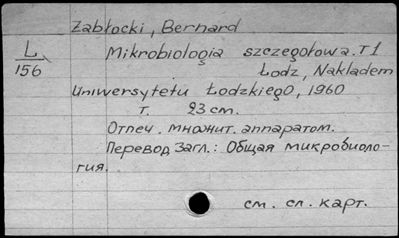 Zabłocki, Bernard
L
156
Mikrobiologia szczegołowa. T 1
Łodz, Nakladem
Uniwersytetu Łodzkiego, 1960
т. 23 cm.
Отпеч. множит. аппаратом.
Перевод Загл.: Общая микробиоло-
гия.
см. сл. карт.